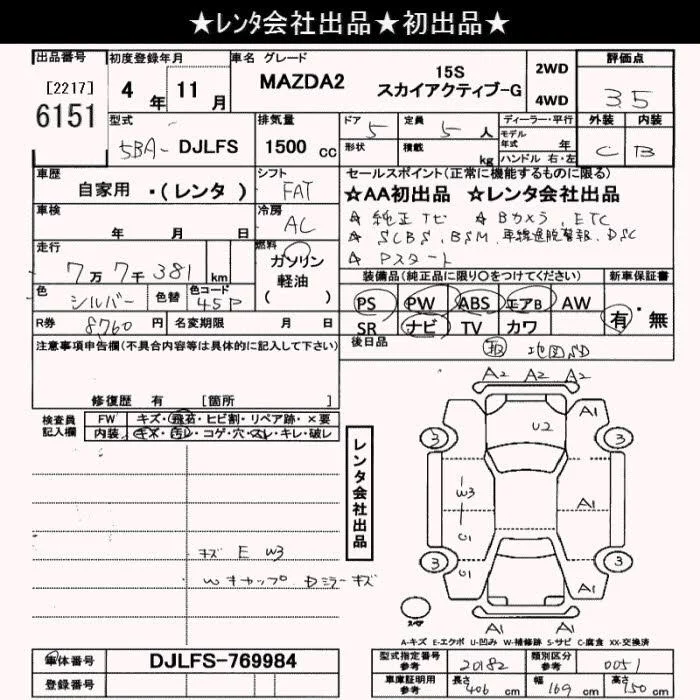 ★レンタ会社出品★初出品★
出品番号 初度登録年月 車名 グレード 評価点
[2217] 4 年 11 月 MAZDA2 15S スカイアクティブ-G 2WD 4WD 3.5
6151 型式 排気量 ドア 5 定員 5 人 ディーラー・平行 外装 内装
5BA- DJLFS 1500 cc 形状 積載 kg モデル年式 年 ハンドル 右・左 C B
車歴 シフト セールスポイント(正常に機能するものに限る)
自家用 ・(レンタ ) FAT ★AA初出品 ★レンタ会社出品
車検 年 月 日 冷房 AC ☆ 純正ナビ ☆ Bカメラ, ETC
☆ SCBS, BSM, 車線逸脱警報, DSC
☆ Pスタート
走行 7万7千381 km 燃料 ガソリン 軽油 ( )
装備品(純正品に限り○をつけてください) 新車保証書
色 シルバー 色替 色コード 45P PS PW ABS エアB AW 有・無
R券 8760 円 名変期限 月 日 SR ナビ TV カワ
注意事項申告欄(不具合内容等は具体的に記入して下さい) 後日品 取 地図SD
修復歴 有 [箇所 ]
検査員記入欄 FW キズ・飛石・ヒビ割・リペア跡・×要
内装 キズ・汚レ・コゲ・穴・スレ・キレ・破レ
レンタ会社出品
A2 A2 A2
U2 A1
3 3
W3 A1
U1
U1 A1
3 3
A1 A1
スペア
キズ E W3
Wキャップ Dミラーキズ
A-キズ E-エクボ U-凹み W-補修跡 S-サビ C-腐食 XX-交換済
車体番号 DJLFS-769984 型式指定番号 参考 20182 類別区分 参考 0051
登録番号 車庫証明用 参考 長さ 406 cm 幅 169 cm 高さ 150 cm